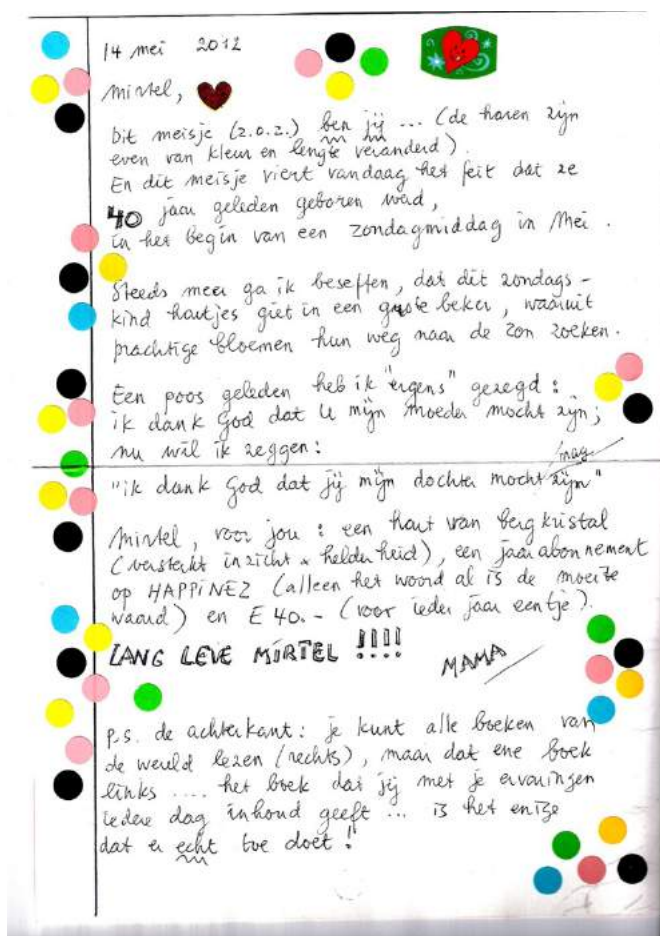 14 mei 2012
Mirtel,
Dit meisje (z.o.z.) ben jij ... (de haren zijn
even van kleur en lengte veranderd).
En dit meisje viert vandaag het feit dat ze
40 jaar geleden geboren werd,
in het begin van een zondagmiddag in Mei.
Steeds meer ga ik beseffen, dat dit zondags-
kind hartjes giet in een grote beker, waaruit
prachtige bloemen hun weg naar de zon zoeken.
Een poos geleden heb ik "ergens" gezegd:
ik dank God dat U mijn moeder mocht zijn;
nu wil ik zeggen:
mag
"ik dank God dat jij mijn dochter mocht zijn"
Mirtel, voor jou: een hart van bergkristal
(versterkt inzicht & helderheid), een jaarabonnement
op HAPPINEZ (alleen het woord al is de moeite
waard) en E 40.- (voor ieder jaar eentje).
LANG LEVE MIRTEL !!!!
MAMA
p.s. de achterkant: je kunt alle boeken van
de wereld lezen (rechts), maar dat ene boek
links .... het boek dat jij met je ervaringen
iedere dag inhoud geeft ... is het enige
dat er echt toe doet!